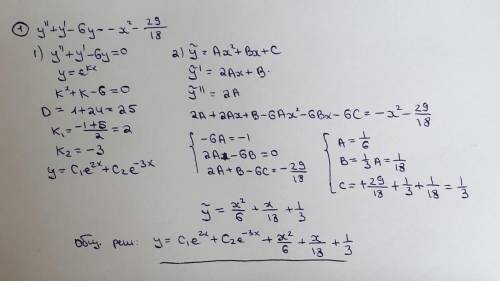 ① y''+y'-6y=-x²-29/18
1) y''+y'-6y=0
y=e^{kx}
k²+k-6=0
D=1+24=25
k₁=(-1+5)/2=2
k₂=-3
y=C₁e^{2x}+C₂e^{-3x}
2) ỹ=Ax²+Bx+C
ỹ'=2Ax+B
ỹ''=2A
2A+2Ax+B-6Ax²-6Bx-6C=-x²-29/18
{ -6A=-1
2A-6B=0
2A+B-6C=-29/18
{ A=1/6
B=1/3A=1/18
C=+29/18+1/3+1/18=1/3
ỹ=x²/6+x/18+1/3
Общ. реш: y=C₁e^{2x}+C₂e^{-3x}+x²/6+x/18+1/3